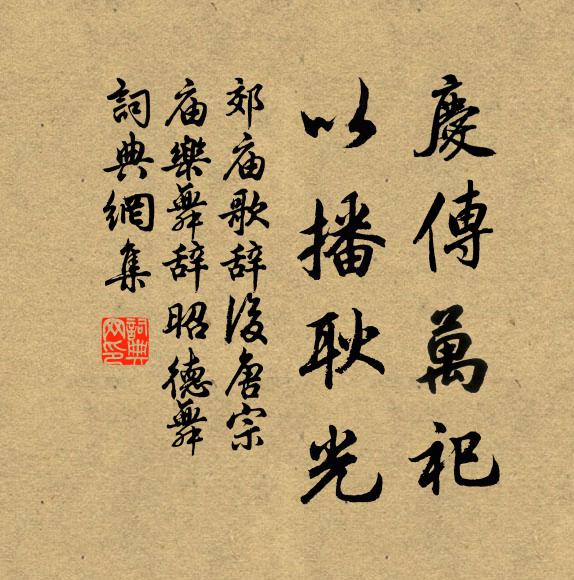 慶傳萬祀
以播耿光
郊庙歌辞後唐宗
庙樂舞辞昭德舞
詞典網集
詞典
网印